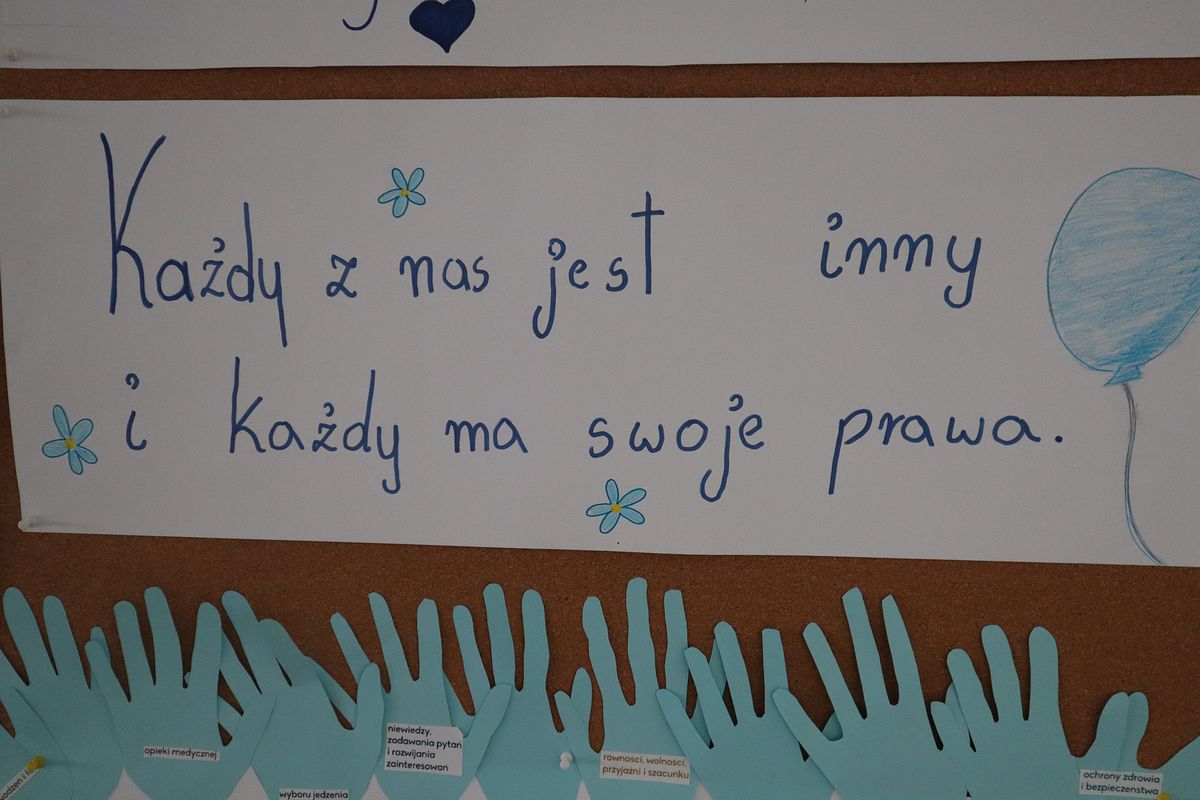 Każdy z nas jest inny
i każdy ma swoje prawa.
opieki medycznej
wyboru jedzenia
niewiedzy,
zadawania pytań
i rozwijania
zainteresowań
równości, wolności,
przyjaźni i szacunku
ochrony zdrowia
i bezpieczeństwa